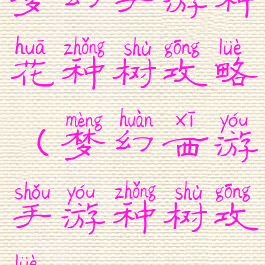 梦幻手游种
huā zhǒng shù gōng lüè
花种树攻略
mèng huàn xī yóu
（梦幻西游
shǒu yóu zhǒng shù gōng
手游种树攻
lüè